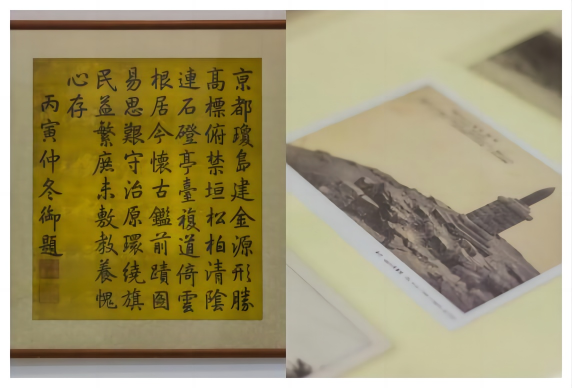 京都瓊島建金源形勝
高標俯禁垣松柏清陰
連石磴亭臺複道倚雲
根居今懷古鑑前蹟圖
易思艱守治原環繞旗
民益繁庶未敷教養愧
心存
丙寅仲冬御題